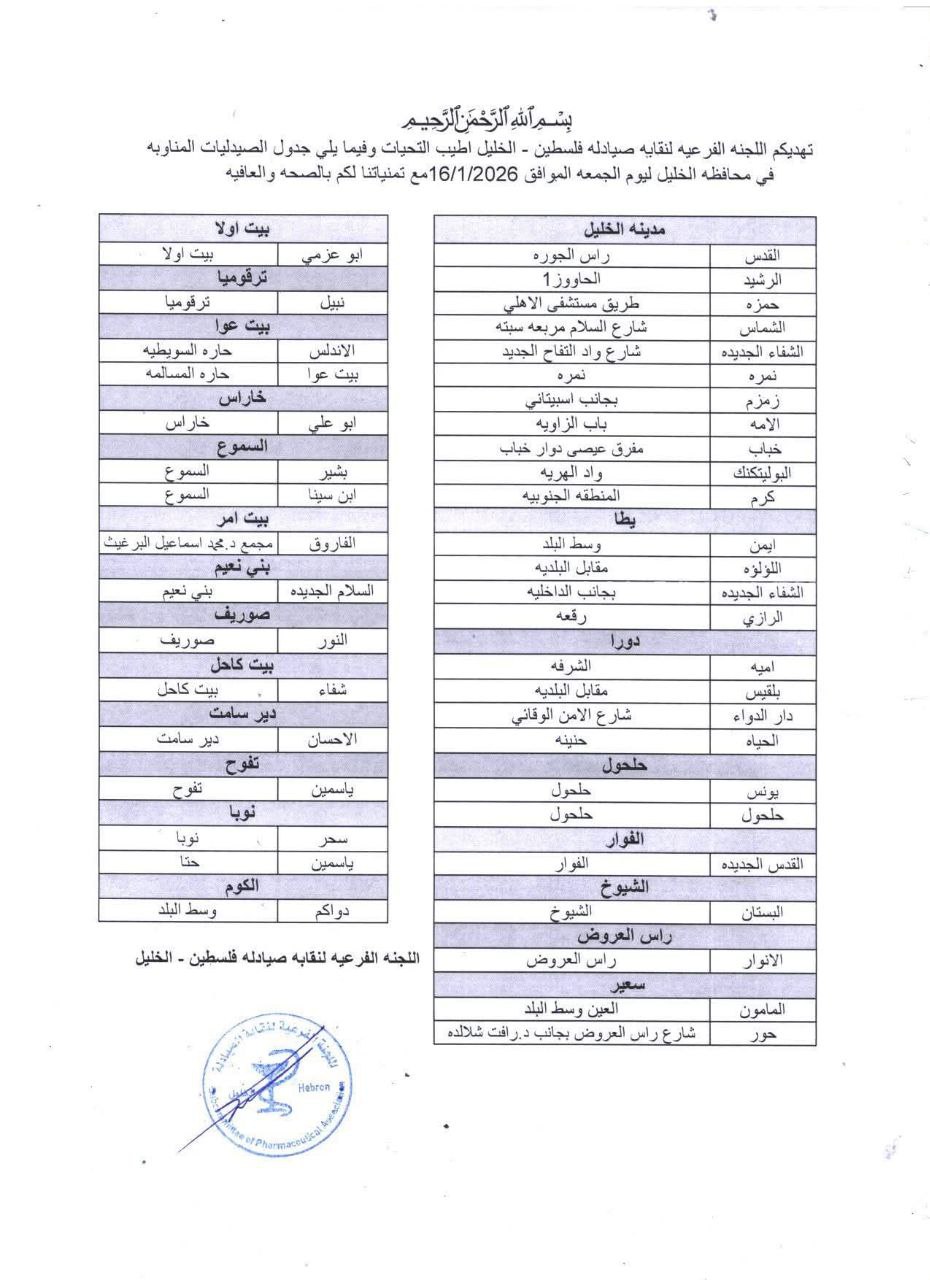 بسم الله الرحمن الرحيم
تهديكم اللجنه الفرعيه لنقابه صيادله فلسطين - الخليل اطيب التحيات وفيما يلي جدول الصيدليات المناوبه
في محافظه الخليل ليوم الجمعه الموافق 16/1/2026مع تمنياتنا لكم بالصحه والعافيه
مدينه الخليل
القدس راس الجوره
الرشيد الحاووز1
حمزه طريق مستشفى الاهلي
الشماس شارع السلام مربعه سبته
الشفاء الجديده شارع واد التفاح الجديد
نمره نمره
زمزم بجانب اسبيتاني
الامه باب الزاويه
خباب مفرق عيصى دوار خباب
البوليتكنك واد الهريه
كرم المنطقه الجنوبيه
يطا
ايمن وسط البلد
اللؤلؤه مقابل البلديه
الشفاء الجديده بجانب الداخليه
الرازي رقعه
دورا
اميه الشرفه
بلقيس مقابل البلديه
دار الدواء شارع الامن الوقائي
الحياه حنينه
حلحول
يونس حلحول
حلحول حلحول
الفوار
القدس الجديده الفوار
الشيوخ
البستان الشيوخ
راس العروض
الانوار راس العروض
سعير
المامون العين وسط البلد
حور شارع راس العروض بجانب د.رافت شلالده
بيت اولا
ابو عزمي بيت اولا
ترقوميا
نبيل ترقوميا
بيت عوا
الاندلس حاره السويطيه
بيت عوا حاره المسالمه
خاراس
ابو علي خاراس
السموع
بشير السموع
ابن سينا السموع
بيت امر
الفاروق مجمع د.محمد اسماعيل البرغيث
بني نعيم
السلام الجديده بني نعيم
صوريف
النور صوريف
بيت كاحل
شفاء بيت كاحل
دير سامت
الاحسان دير سامت
تفوح
ياسمين تفوح
نوبا
سحر نوبا
ياسمين حتا
الكوم
دواكم وسط البلد
اللجنه الفرعيه لنقابه صيادله فلسطين - الخليل
اللجنة الفرعية لنقابة الصيادلة
Hebron
Subcommittee of Pharmaceutical Association